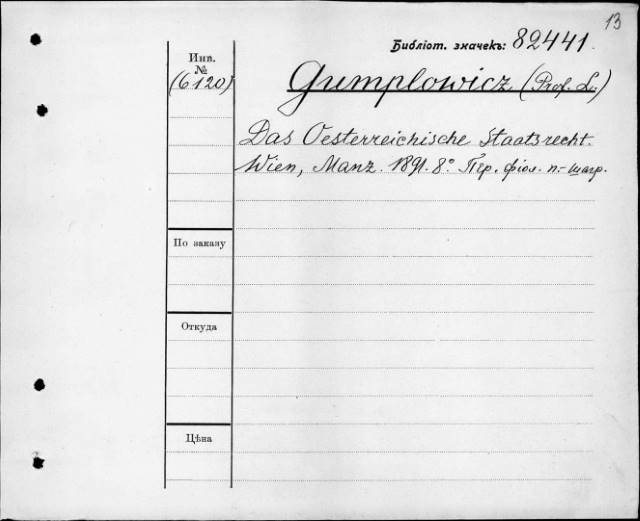 13
Библіот. значекъ: 82441.
Инв.
№
(6120)
Gumplowicz (Prof. L.)
Das Oesterreichische Staatsrecht.
Wien, Manz. 1891. 8°. Пер. фіол. п.-шагр.
По заказу
Откуда
Цѣна